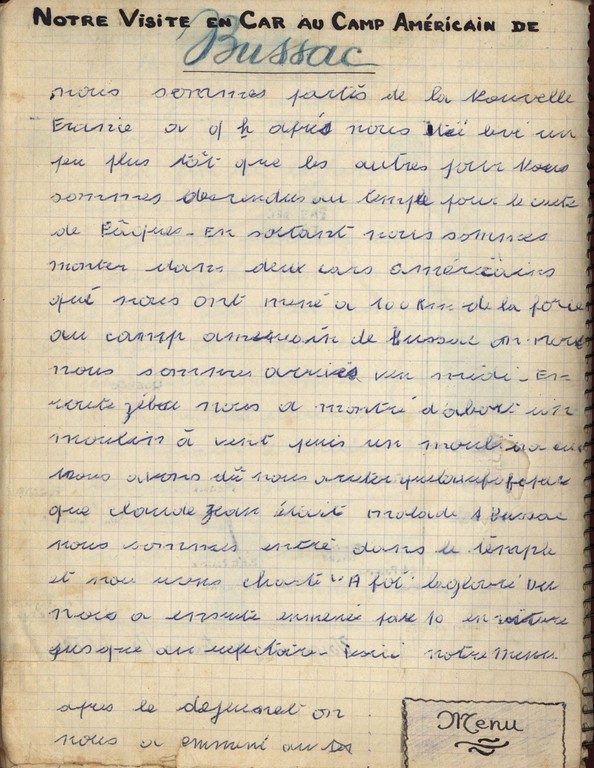 NOTRE VISITE EN CAR AU CAMP AMÉRICAIN DE
Bussac
nous sommes partés de la Nouvelle
a 9 h après nous levé un
peu plus tôt que les autres pour nous
sommes desrendus au temple pour le culte
de Pâques - En sortant nous sommes
monter dans deux cars américains
qué nous ont mené a 100 Km de la force
au camp de Bussac on nous
nous sommes arrivés ver midi - En
route zébu nous a montré d'abort un
moulin à vent puis un moulin a eau
nous avons dû nous arreter quelquefois par
que claude Jean était malade A Bussac
nous sommes entré dans le temple
et nou avons chanté "A toi la gloire" on
nous a ensuite enmené par 10 en voiture
jusque au refectoire - voici notre menu
apres le dejeunet on
nous a emmené
Menu